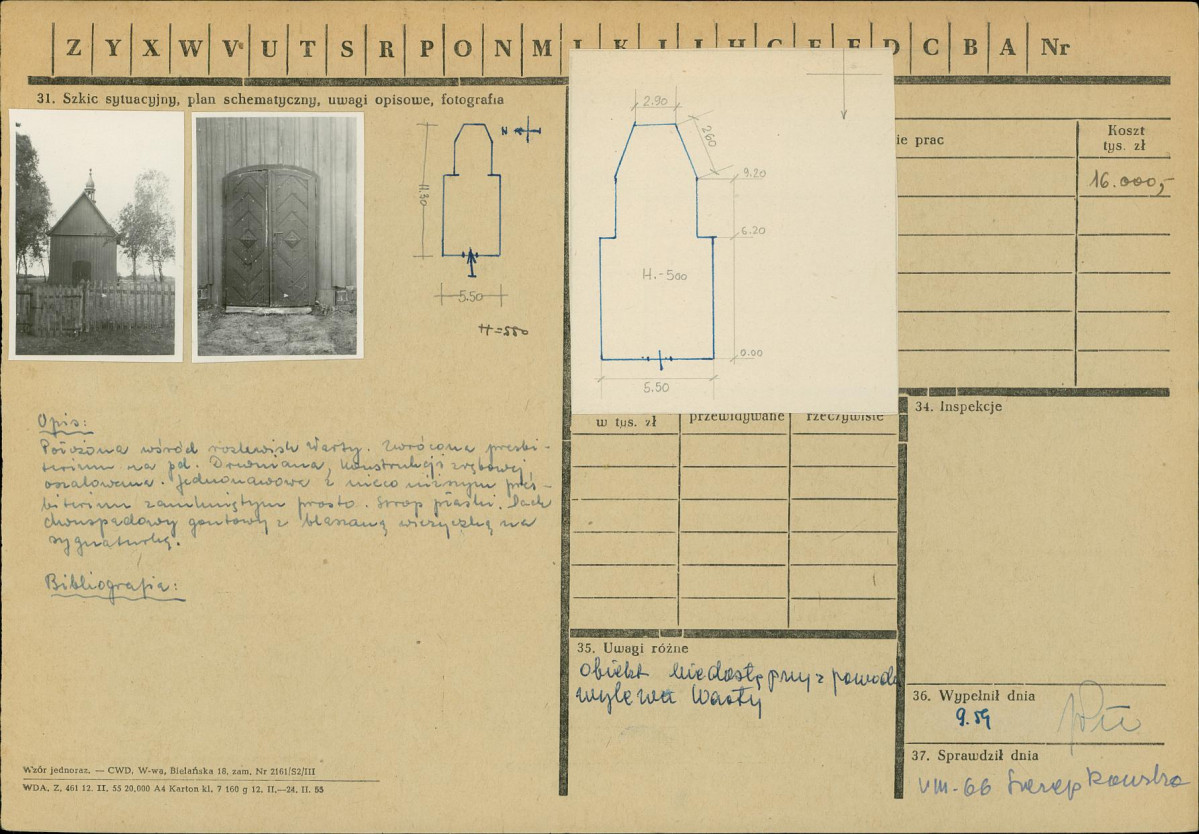 Z Y X W V U T S R P O N M Ł K J I H G F E D C B A Nr
31. Szkic sytuacyjny, plan schematyczny, uwagi opisowe, fotografia
N
11.30
5.50
H=550
2.90
260
9.20
6.20
H.-500
0.00
5.50
ie prac
Koszt
tys. zł
16.000,-
w tys. zł
przewidywane
rzeczywiste
34. Inspekcje
Opis:
Położona wśród rozlewisk Warty. Zwrócona prezbi-
terium na pd. Drewniana, konstrukcji zrębowej,
oszalowana. Jednonawowa z nieco niższym prez-
biterium zamkniętym prosto. Strop płaski. Dach
dwuspadowy gontowy z blaszaną wieżyczką na
sygnaturkę.
Bibliografia:
35. Uwagi różne
Obiekt niedostępny z powodu
wylewu Warty
36. Wypełnił dnia
9.59
37. Sprawdził dnia
VIII-66
Wzór jednoraz. — CWD, W-wa, Bielańska 18, zam. Nr 2161/S2/III
WDA. Z. 461 12. II. 55 20.000 A4 Karton kl. 7 160 g 12. II.—24. II. 55